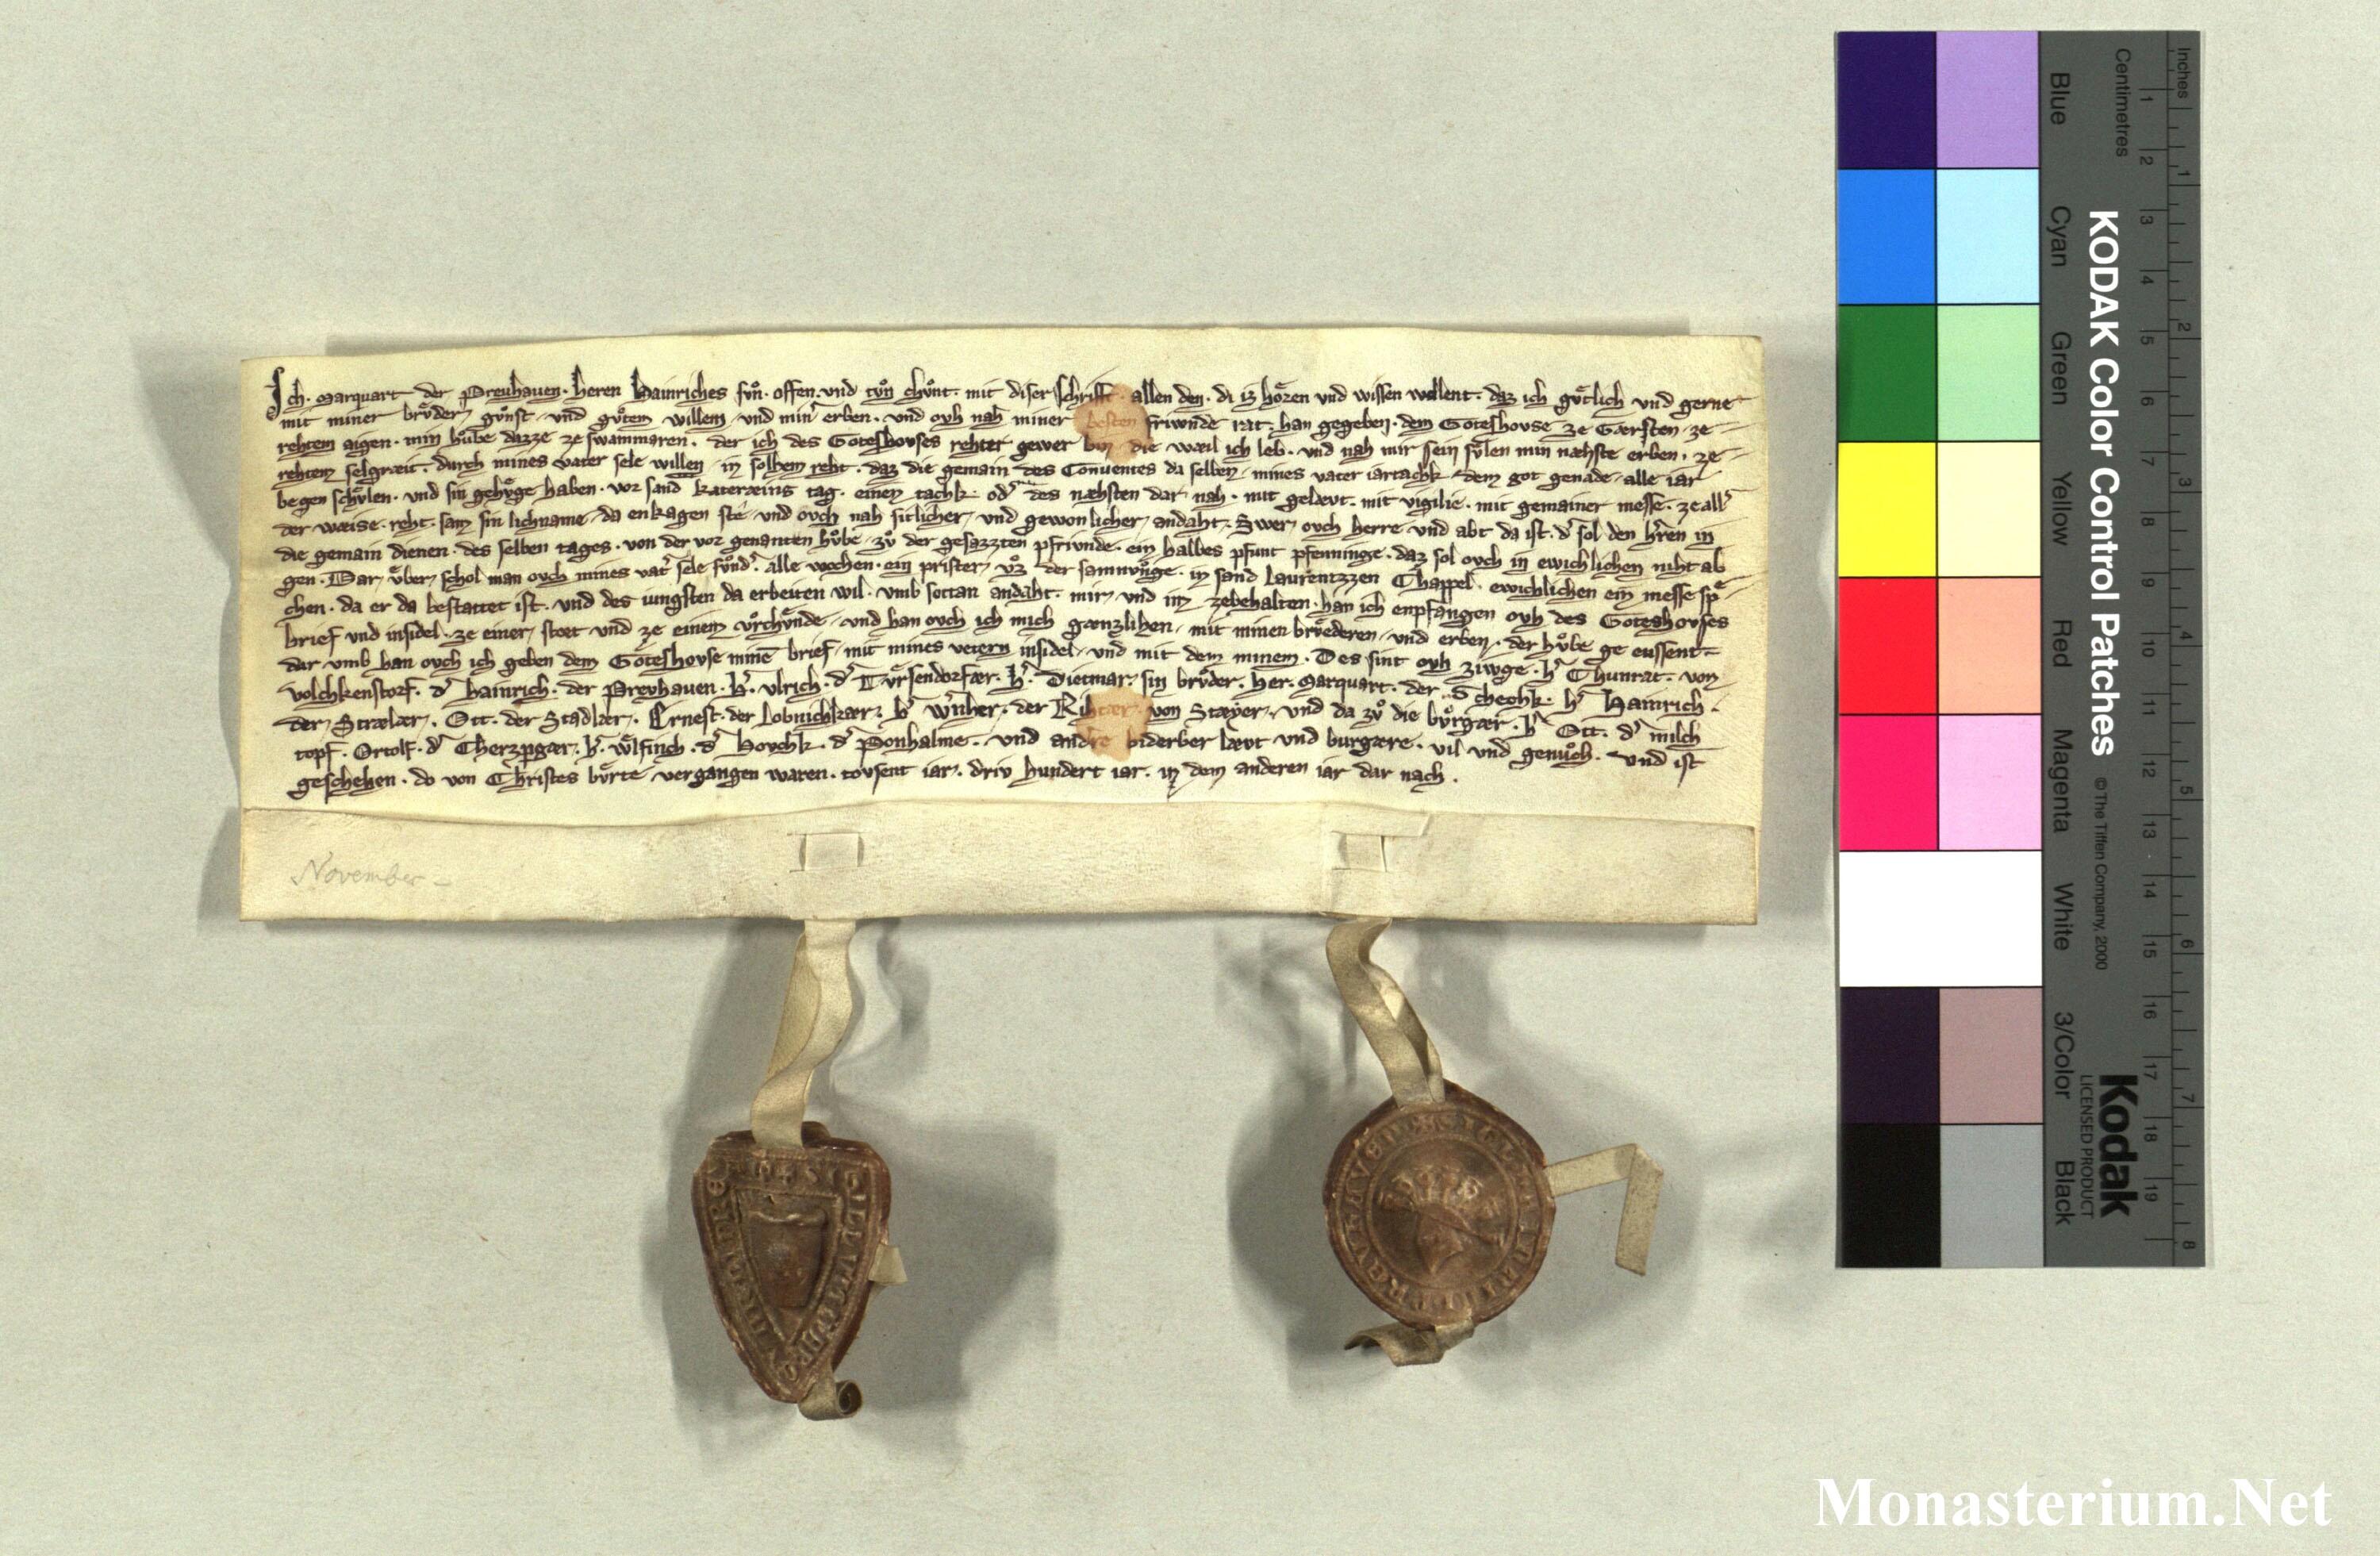 Ich. Marquart der Preuhauen. heren Hainriches sůn. offen. vnd tůn chůnt. mit diser schrifft allen den. di iz hǒren vnd wissen wellent. daz ich gůtlich vnd gerne
mit miner brůder gůnst. vnd gůtem willem vnd minr̄ erben. vnd ovh nah miner besten friwnde rat. han gegeben. dem Goteshovse ze Gærsten ze
rehtem aigen. min hůbe dazze ze swammaren. der ich des Goteshovses rehter gewer bin die wæil ich leb. vnd nah mir sein sůlen min næhste erben. ze
rehtem selgræit. durch mines vater sele willen in solhem reht. daz die gemain des Conuentes da selben mines vater iartachk dem got genade alle iar
begen schůlen. vnd sin gehůge haben. vor sand Kateræins tag. einen tachk. od' des næhsten dar nah. mit gelævt. mit vigilie. mit gemainer messe. ze all'
der wæise. reht. sam sin lichname da enkagen ste vnd ovch nah sitlicher vnd gewonlicher andaht. Swer ovch herre vnd abt da ist. d' sol den h'ren in
die gemain dienen. des selben tages. von der vor genanten hůbe zů der gesazzten pfriunde. ein halbes pfunt pfenninge. daz sol ovch in ewichlichen niht ab
gen. Dar ůber schol man ovch mines vat' sele sůnd'. alle wochen. ein prister vz der samnůnge. in sand Laurentzzen Chappel. ewichlichen ein messe spre
chen. da er da bestattet ist. vnd des iungsten da erbeiten wil. vmb sottan andaht. mir vnd im zebehalten. han ich enpfangen ovh des Goteshovses
brief vnd insidel. ze einer stæt vnd ze einem vrchůnde vnd han ovch ich mich gænzlihen mit minen brůederen vnd erben. der hůbe ge eussent
dar vmb han ovch ich geben dem Goteshovse minē brief mit mines vetern insidel vnd mit dem minem. Des sint ovh ziwge. h'. Chunrat. von
volchkenstorf. d' Hainrich. der Preuhauen. h'. vlrich. d' Tůrsendorfær. h'. Dietmar sin brůder. her. Marquart. der Schechk. h' Hainrich.
der Strælær. Ott. der Stadlær. Ernest. der Lobnichkær. h' w'nher. der Rihtær von Stæyer. vnd da zů die bůrgær. h' Ott. d' milch
topf. Ortolf. d' Cherzpgær. h'. wůlfinch. d' Hovchk. d' Ponhalme. vnd andre biderber lævt vnd burgære. vil vnd genůch. vnd ist
geschehen. do von Christes bůrte vergangen waren. tovsent iar. driv hundert iar. in dem anderen iar dar nach.
November
Inches
Centimetres
1 2 3 4 5 6 7 8 9 10 11 12 13 14 15 16 17 18 19
1 2 3 4 5 6 7 8
KODAK Color Control Patches
© The Tiffen Company, 2000
Kodak
LICENSED PRODUCT
Blue
Cyan
Green
Yellow
Red
Magenta
White
3/Color
Black
Monasterium.Net